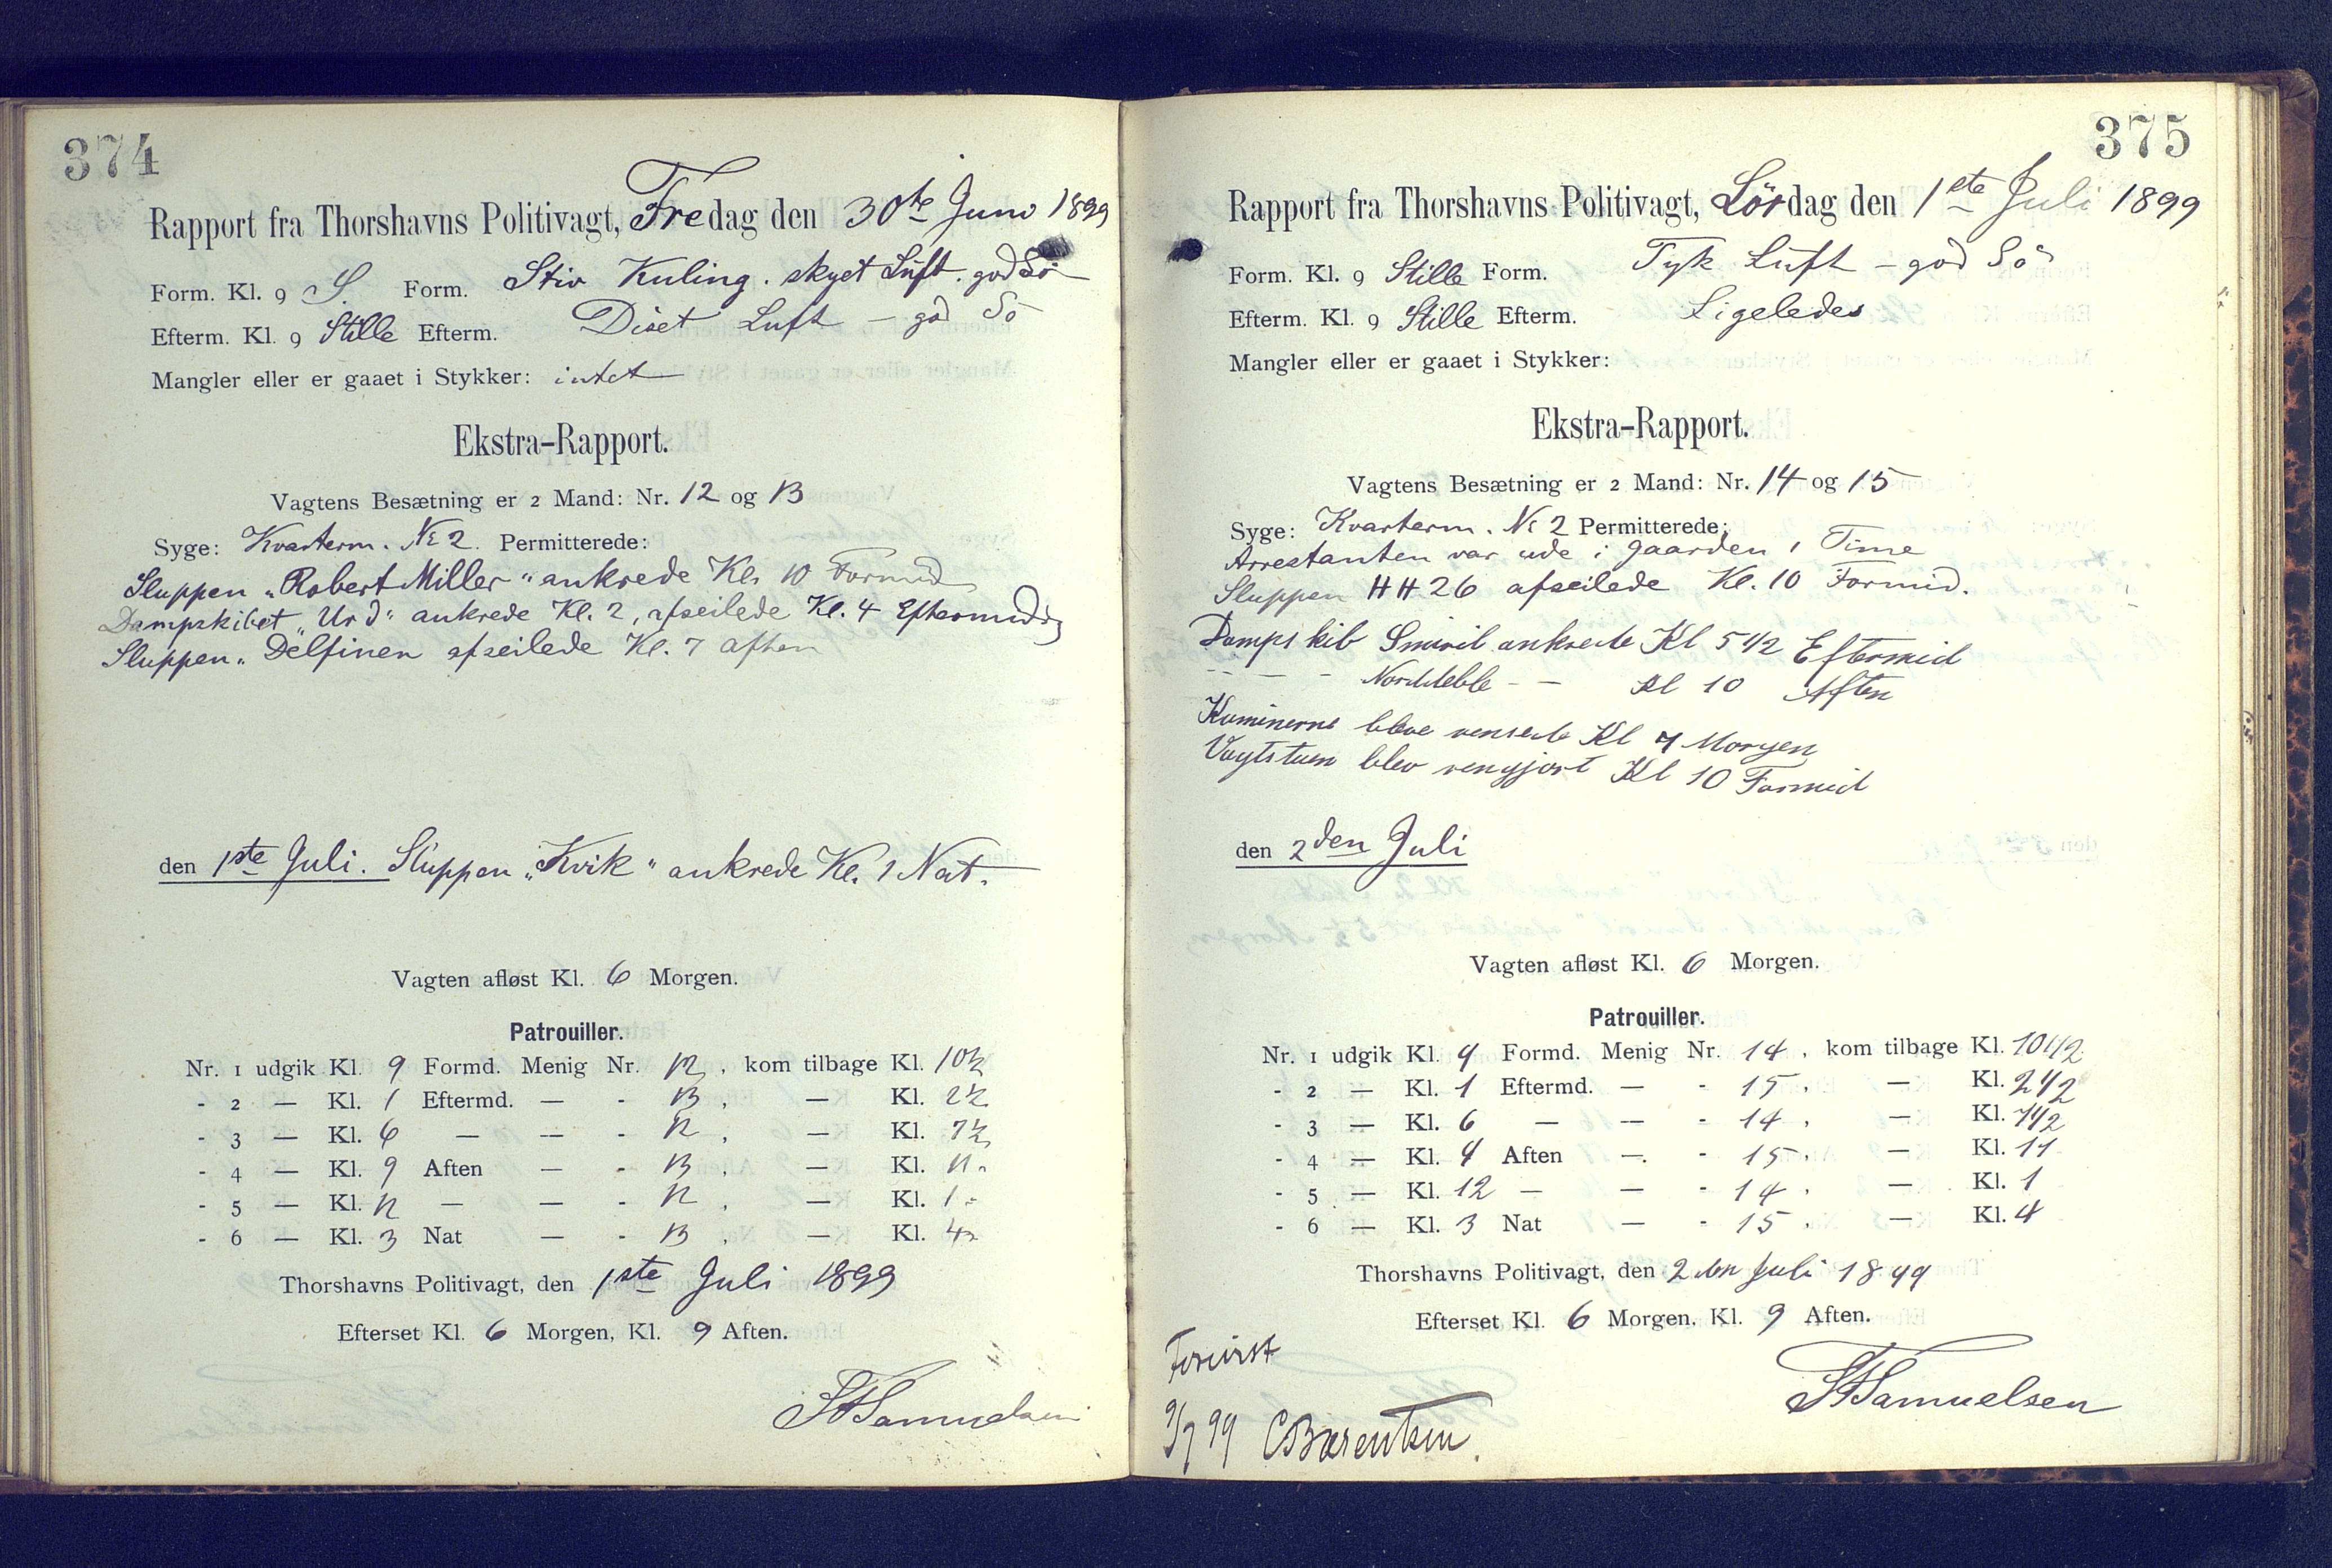 374
Rapport fra Thorshavns Politivagt, Fredag den 30te Juni 1899
Form. Kl. 9 S. Form. Stiv Kuling. skyet Luft. god Sö
Efterm. Kl. 9 Stille Efterm. Diset Luft – god Sö
Mangler eller er gaaet i Stykker: intet
Ekstra-Rapport.
Vagtens Besætning er 2 Mand: Nr. 12 og 13
Syge: Kvarterm. No 2. Permitterede:
Sluppen „Robert Miller" ankrede Kl. 10 Formid
Dampskibet „Urd" ankrede Kl. 2, afseilede Kl. 4 Eftermiddg
Sluppen „Delfinen afseilede Kl. 7 Aften
den 1ste Juli. Sluppen „Kvik" ankrede Kl. 1 Nat.
Vagten afløst Kl. 6 Morgen.
Patrouiller.
Nr. 1 udgik Kl. 9 Formd. Menig Nr. 12, kom tilbage Kl. 10½
- 2 — Kl. 1 Eftermd. — - 13, — Kl. 2½
- 3 — Kl. 6 — — - 12, — Kl. 7½
- 4 — Kl. 9 Aften — - 13, — Kl. 11 -
- 5 — Kl. 12 — — - 12, — Kl. 1 -
- 6 — Kl. 3 Nat — - 13, — Kl. 4 -
Thorshavns Politivagt, den 1ste Juli 1899
Efterset Kl. 6 Morgen, Kl. 9 Aften.
Samuelsen
375
Rapport fra Thorshavns Politivagt, Lördag den 1ste Juli 1899
Form. Kl. 9 Stille Form. Tyk Luft – god Sö
Efterm. Kl. 9 Stille Efterm. Ligeledes
Mangler eller er gaaet i Stykker:
Ekstra-Rapport.
Vagtens Besætning er 2 Mand: Nr. 14 og 15
Syge: Kvarterm. No 2 Permitterede:
Arrestanten var ude i Gaarden 1 Time
Sluppen HH 26 afseilede Kl. 10 Formid.
Dampskib Smiril ankrede Kl 5 1/2 Eftermid
- - - Norddeble - — Kl 10 Aften
Kaminerne bleve rensede Kl 7 Morgen
Vagtstuen blev rengjort Kl 10 Formid
den 2den Juli
Vagten afløst Kl. 6 Morgen.
Patrouiller.
Nr. 1 udgik Kl. 9 Formd. Menig Nr. 14, kom tilbage Kl. 10 1/2
- 2 — Kl. 1 Eftermd. — - 15, — Kl. 2 1/2
- 3 — Kl. 6 — — - 14, — Kl. 7 1/2
- 4 — Kl. 9 Aften — - 15, — Kl. 11
- 5 — Kl. 12 — — - 14, — Kl. 1
- 6 — Kl. 3 Nat — - 15, — Kl. 4
Thorshavns Politivagt, den 2den Juli 1899
Efterset Kl. 6 Morgen, Kl. 9 Aften.
Forevist
9/7 99 CBærentsen.
Samuelsen